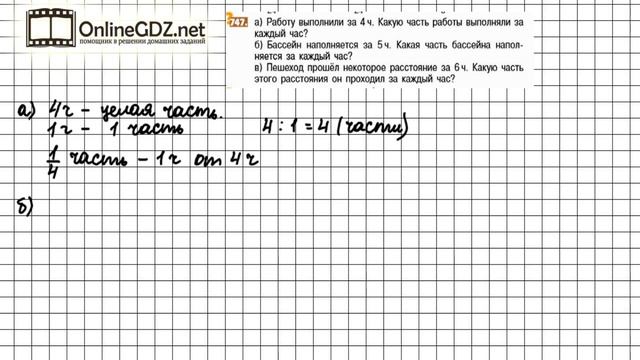 OnlineGDZ.net
помощник в решении домашних заданий
747.
а) Работу выполнили за 4 ч. Какую часть работы выполняли за
каждый час?
б) Бассейн наполняется за 5 ч. Какая часть бассейна напол-
няется за каждый час?
в) Пешеход прошёл некоторое расстояние за 6 ч. Какую часть
этого расстояния он проходил за каждый час?
а) 4ч – целая часть.
1ч – 1 часть 4 : 1 = 4 (части)
1/4 часть – 1ч от 4ч
б)